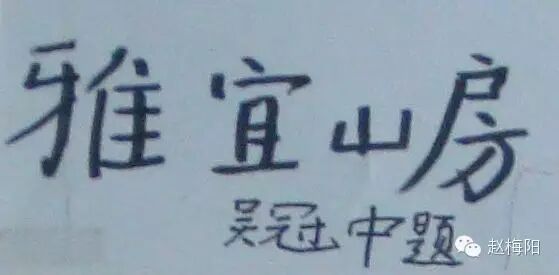 雅宜山房
吴冠中题
赵梅阳